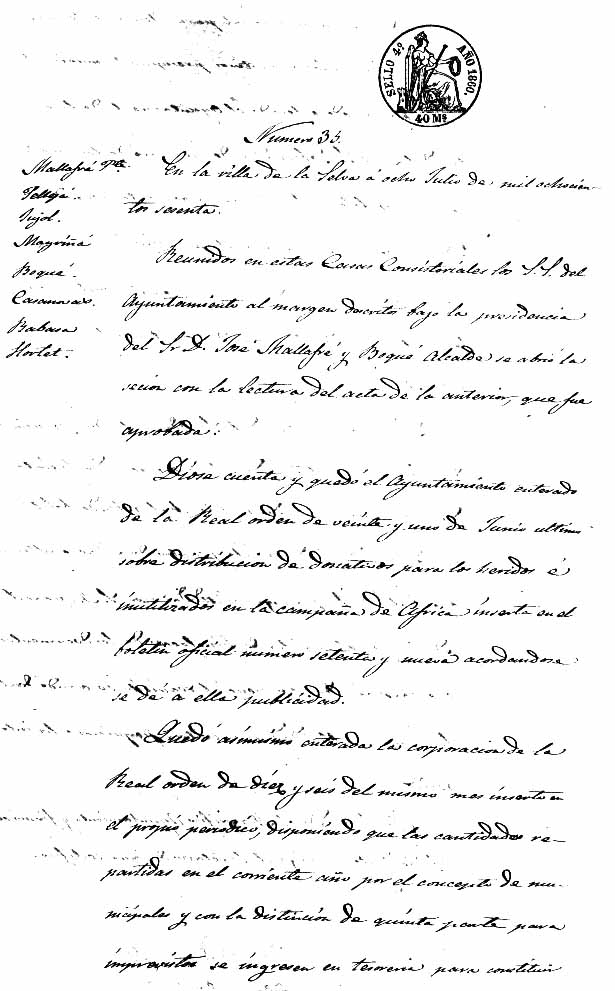 SELLO 4º AÑO 1860.
40 Ms
Numero 35.
Mallafré Pte
Pellejá.
Pujol.
Mayriñá
Boqué.
Casanovas.
Rabasa
Hortet.
En la villa de la Selva á ocho Julio de mil ochocien-
tos sesenta.
Reunidos en estas Casas Consistoriales los S.S. del
Ayuntamiento al margen descritos bajo la presidencia
del Sr D. José Mallafré y Boqué Alcalde se abrió la
sesion con la lectura del acta de la anterior, que fue
aprobada.
Diose cuenta y quedó el Ayuntamiento enterado
de la Real orden de veinte y uno de Junio ultimo
sobre distribucion de donativos para los heridos é
inutilizados en la campaña de Africa inserta en el
boletin oficial numero setenta y nueve acordandose
se dé a ella publicidad.
Quedó asimismo enterada la corporacion de la
Real orden de diez y seis del mismo mes inserta en
el propio periodico, disponiendo que las cantidades re-
partidas en el corriente año por el concepto de mu-
nicipales y con la distincion de quinta parte para
imprevistos se ingresen en tesoreria para constituir